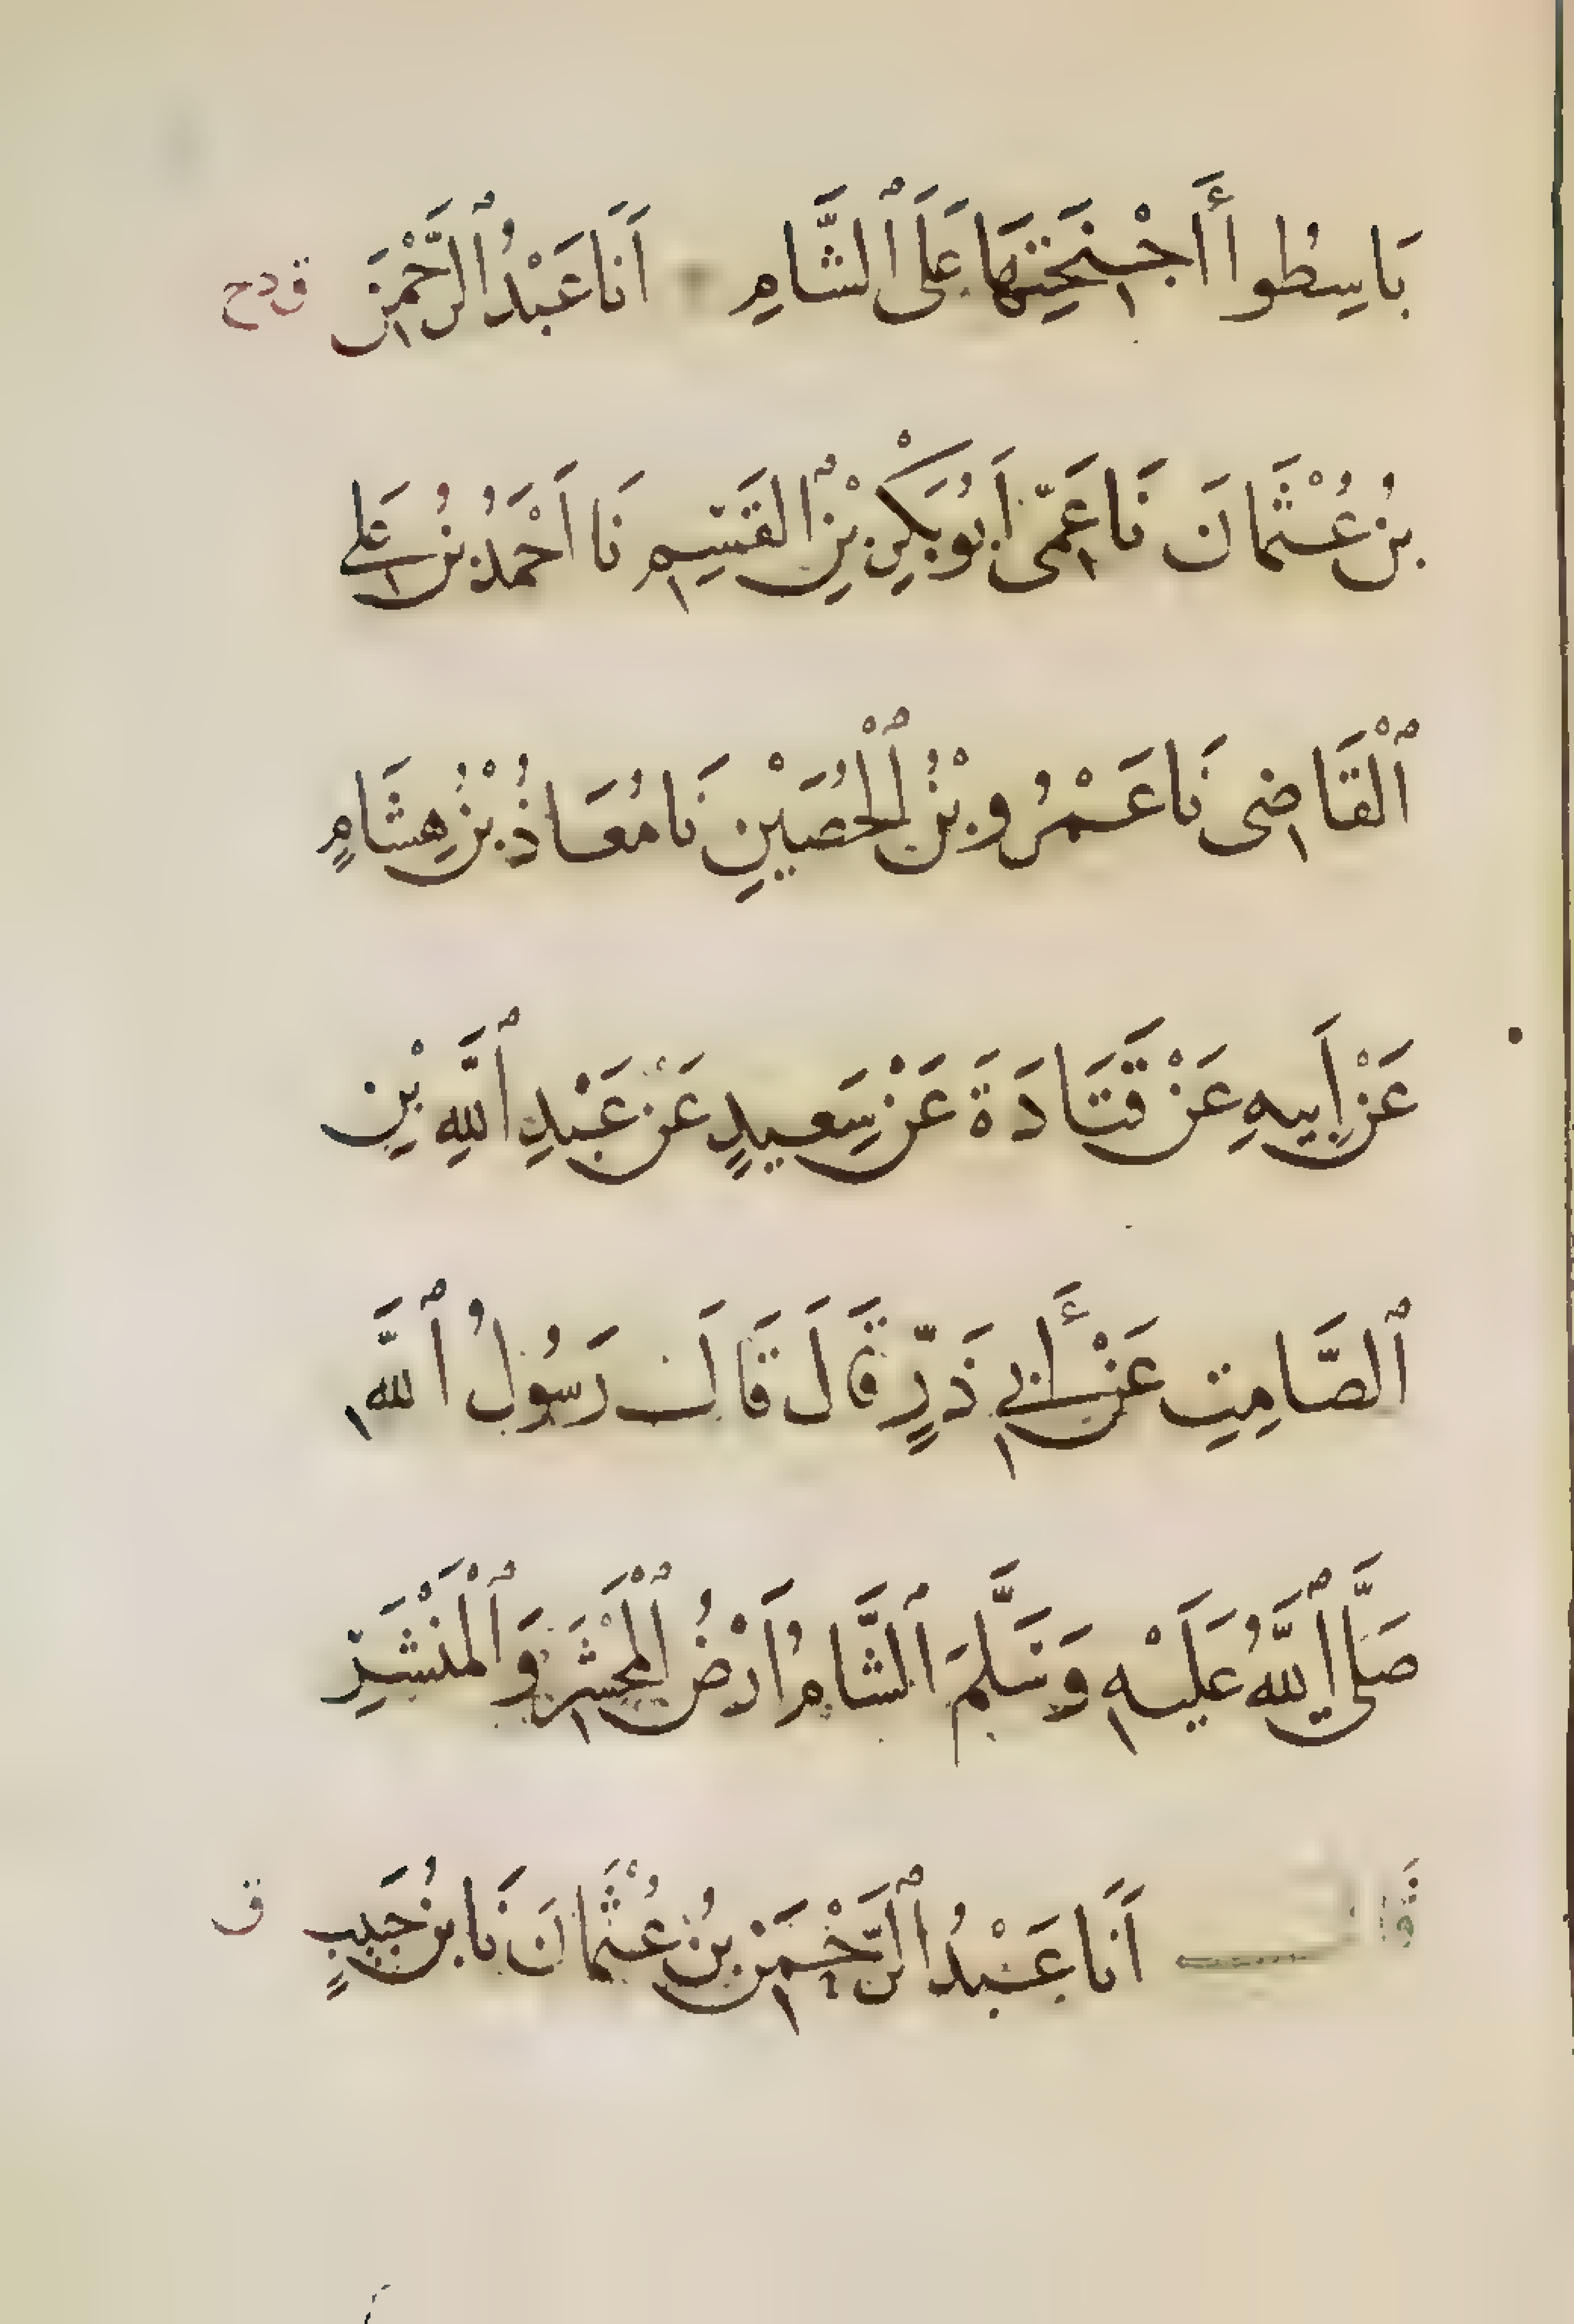 بَاسِطُوا أَجْنَحِتَهَا عَلَى ٱلشَّامِ اَنَا عَبْدُ ٱلرَّحْمَنِ ق د ح
بنُ عُثْمَانَ نَا عَمّى اَبُو بَكْرِ بْنِ ٱلقَسِيمِ نَا اَحْمَدُ بنُ عَلى
ٱلْقَاضِى نَا عَمْرُو بْنُ ٱلْحُصَيْنِ نَا مُعَاذُ بْنُ هِشَامٍ
عَنْ اَبِيهِ عَنْ قَتَادَةَ عَنْ سَعِيدٍ عَنْ عَبْدِ ٱللَّهِ بْنِ
ٱلصَّامِتِ عَنْ أَبِى ذَرٍّ قَالَ قَالَ رَسُولُ ٱللَّه
صَلَّى ٱللَّهُ عَلَيْهِ وَسَلَّمَ ٱلشَّامُ اَرْضُ ٱلْمَحْشَرِ وَٱلْمَنْشَرِ
اَنَا عَبْدُ ٱلرَّحْمَنِ بنُ عُثْمَانَ نَا بنُ حَبِيبٍ ق